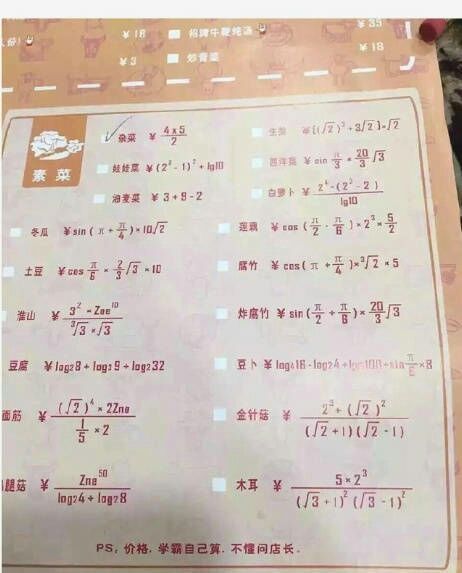 ¥18 招牌牛鞭炖汤 ¥35
¥3 炒青菜 ¥18
素菜
杂菜 ¥ 4×5/2
生菜 ¥[(√2)³+3√2]÷√2
娃娃菜 ¥(2²-1)²+lg10
西洋菜 ¥sin π/3 × 20/3 √3
油麦菜 ¥3+9-2
白萝卜 ¥ 2⁴-(2²-2)/lg10
冬瓜 ¥sin(π+π/4)×10√2
莲藕 ¥cos(π/2-π/6)×2³×5/2
土豆 ¥cos π/6 × 2/3 √3 ×10
腐竹 ¥cos(π+π/4)×³√2×5
淮山 ¥ 3²×Zne¹⁰/³√3×√3
炸腐竹 ¥sin(π/2+π/6)×20/3 √3
豆腐 ¥log28+log39+log232
豆卜 ¥log416-log24+lg100+sin π/6 ×8
面筋 ¥ (√2)⁴×2Zne / 1/5×2
金针菇 ¥ 2³+(√2)²/(√2+1)(√2-1)
腿菇 ¥ Zne⁵⁰/log24+log28
木耳 ¥ 5×2³/(√3+1)²(√3-1)²
PS, 价格, 学霸自己算, 不懂问店长.